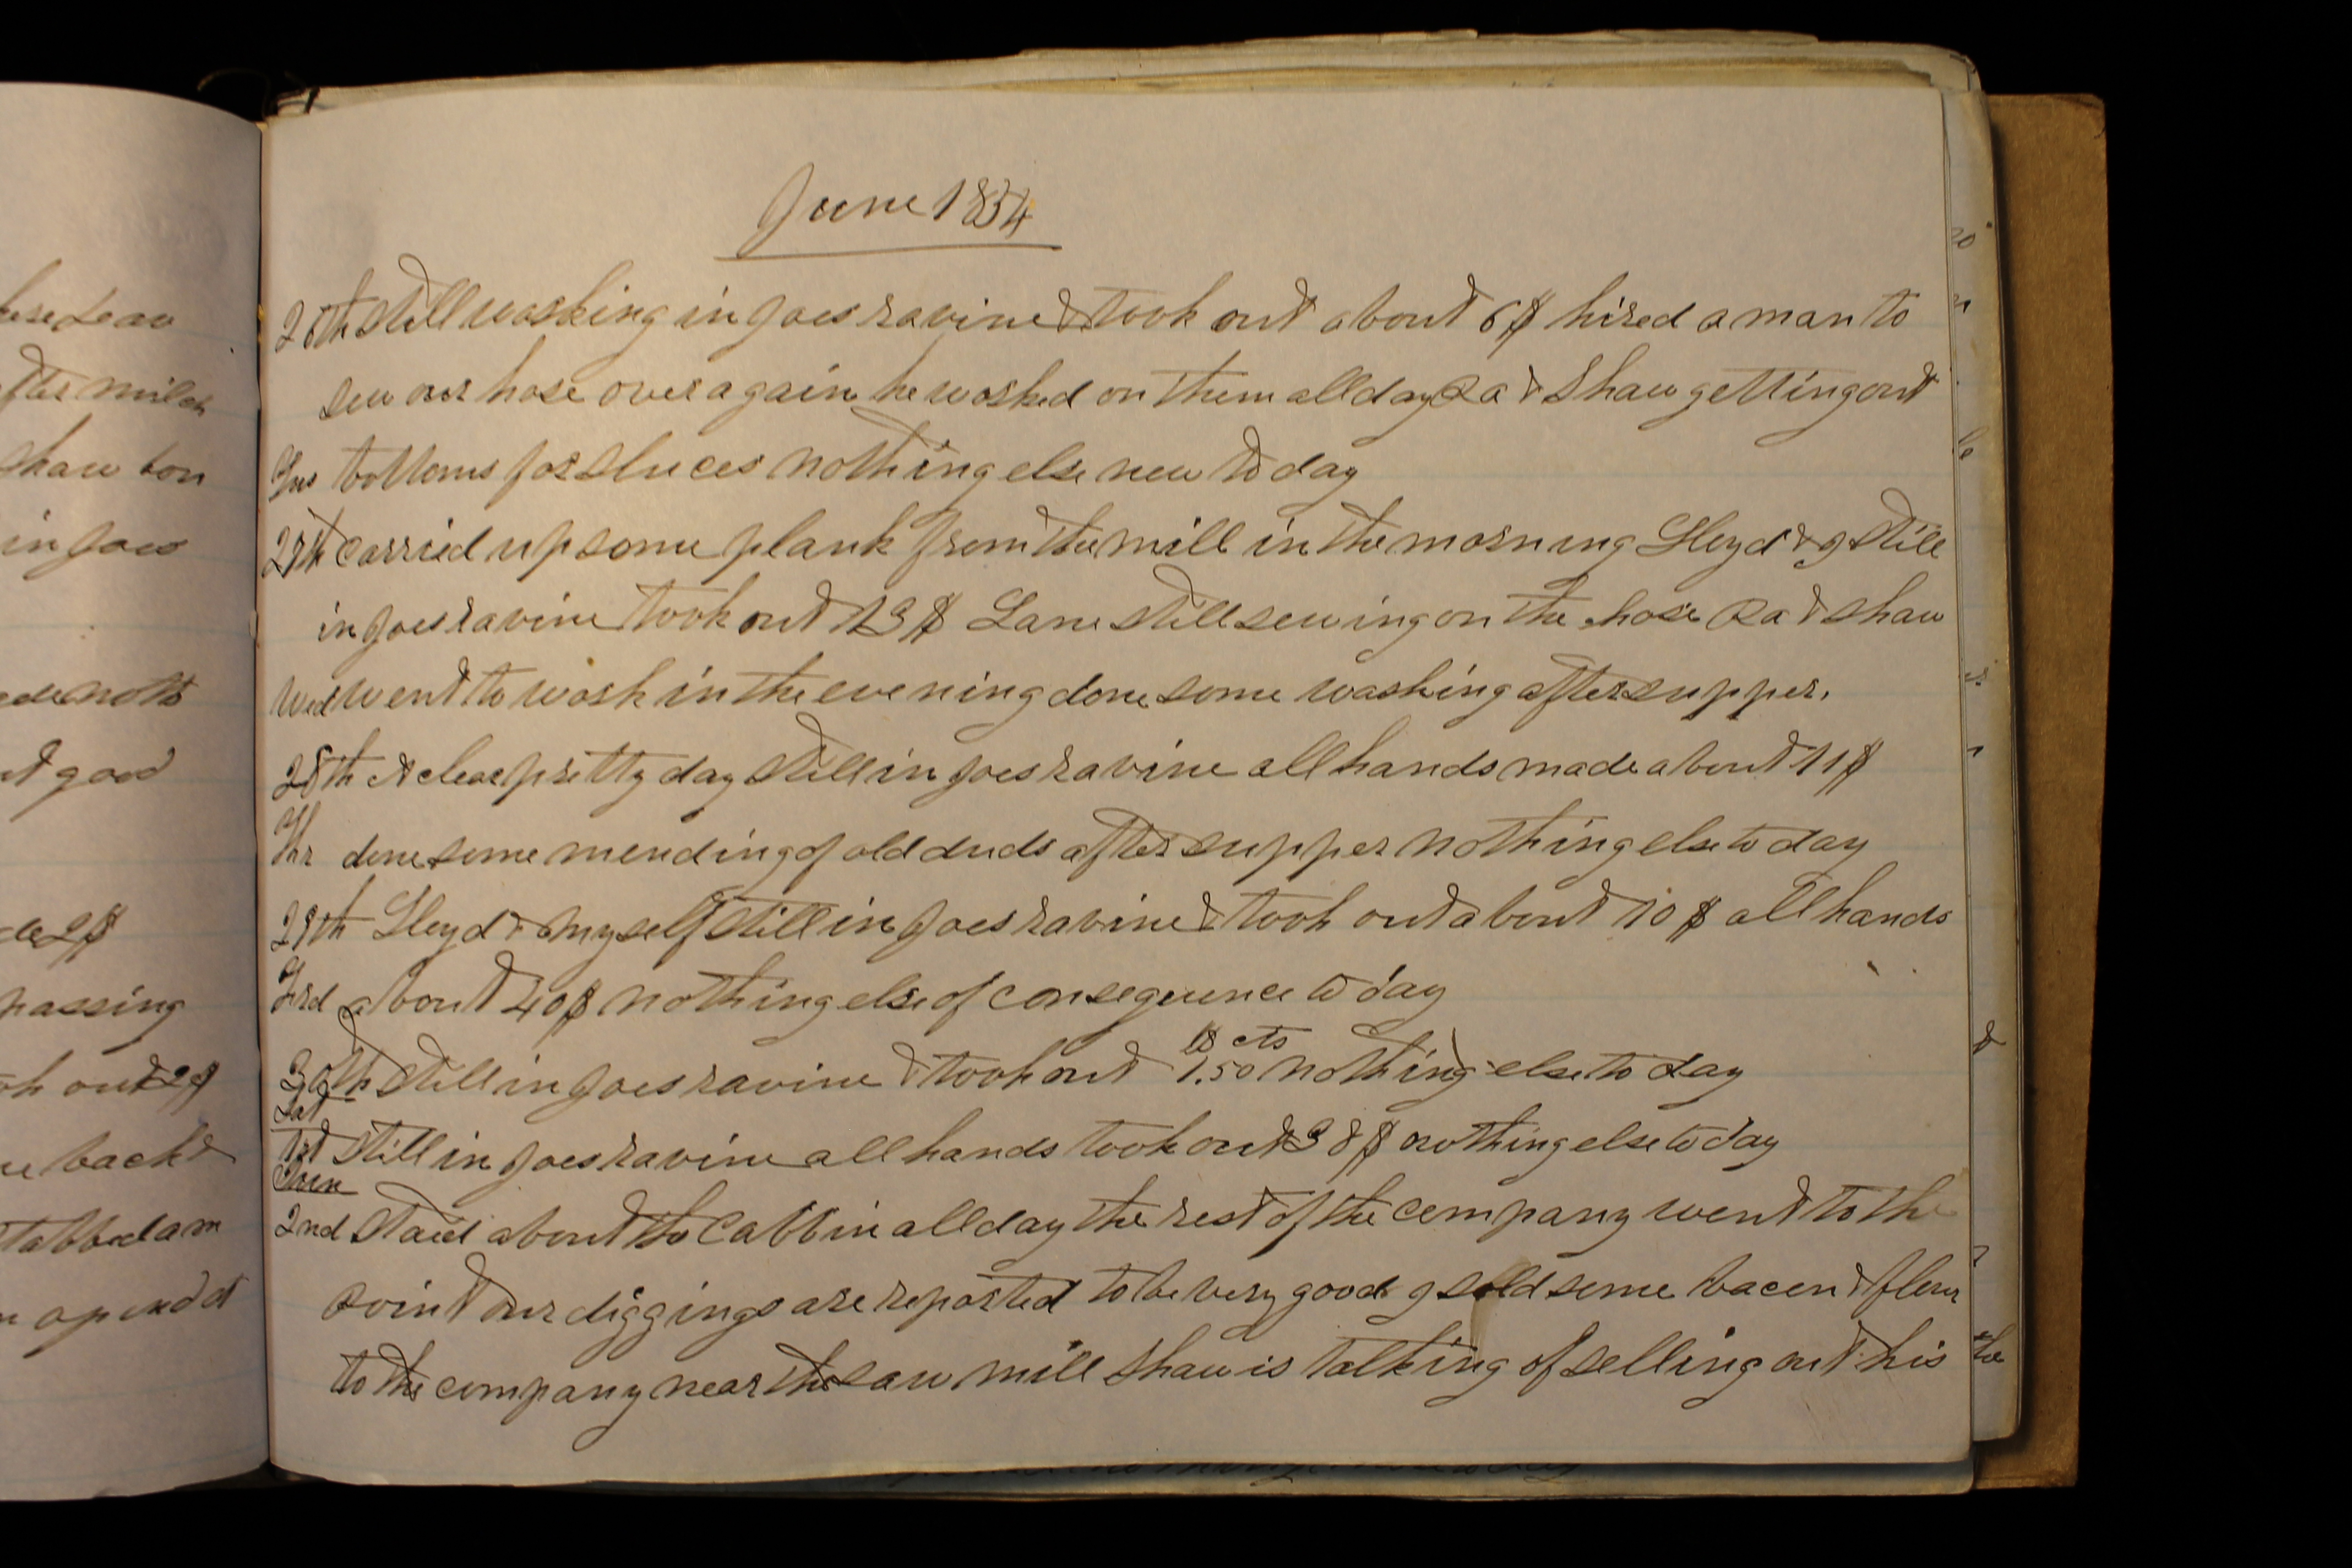 here Lear
after milch
Shaw bou
in Joes
ade nots
nt good
de 2$
passing
ok out 2$
e back &
stabbed a m
June 1854
26th Still washing in Joes ravine & took out about 6$ hired a man to
sew our hose over again he worked on them all day Ra & Shaw getting out
Tus bottoms for sluices nothing else new to day
27th Carried up some plank from the mill in the morning Lloyd & I still
in Joes ravine took out 13$ Lane still sewing on the hose Ra & Shaw
Wed went to work in the evening done some washing after supper.
28th A clear pretty day still in Joes ravine all hands made about 11$
Thr done some mending of old duds after supper nothing else to day
29th Lloyd & myself still in Joes ravine & took out about 10$ all hands
Frd about 40$ nothing else of consequence to day
$ cts
30th Still in Joes ravine & took out 1.50 nothing else to day
Sat
1st Still in Joes ravine all hands took out 38$ nothing else to day
Sun
2nd Staid about the Cabbin all day the rest of the company went to the
Point our diggings are reported to be very good I sold some bacon & flour
to the company near the saw mill Shaw is talking of selling out his
the